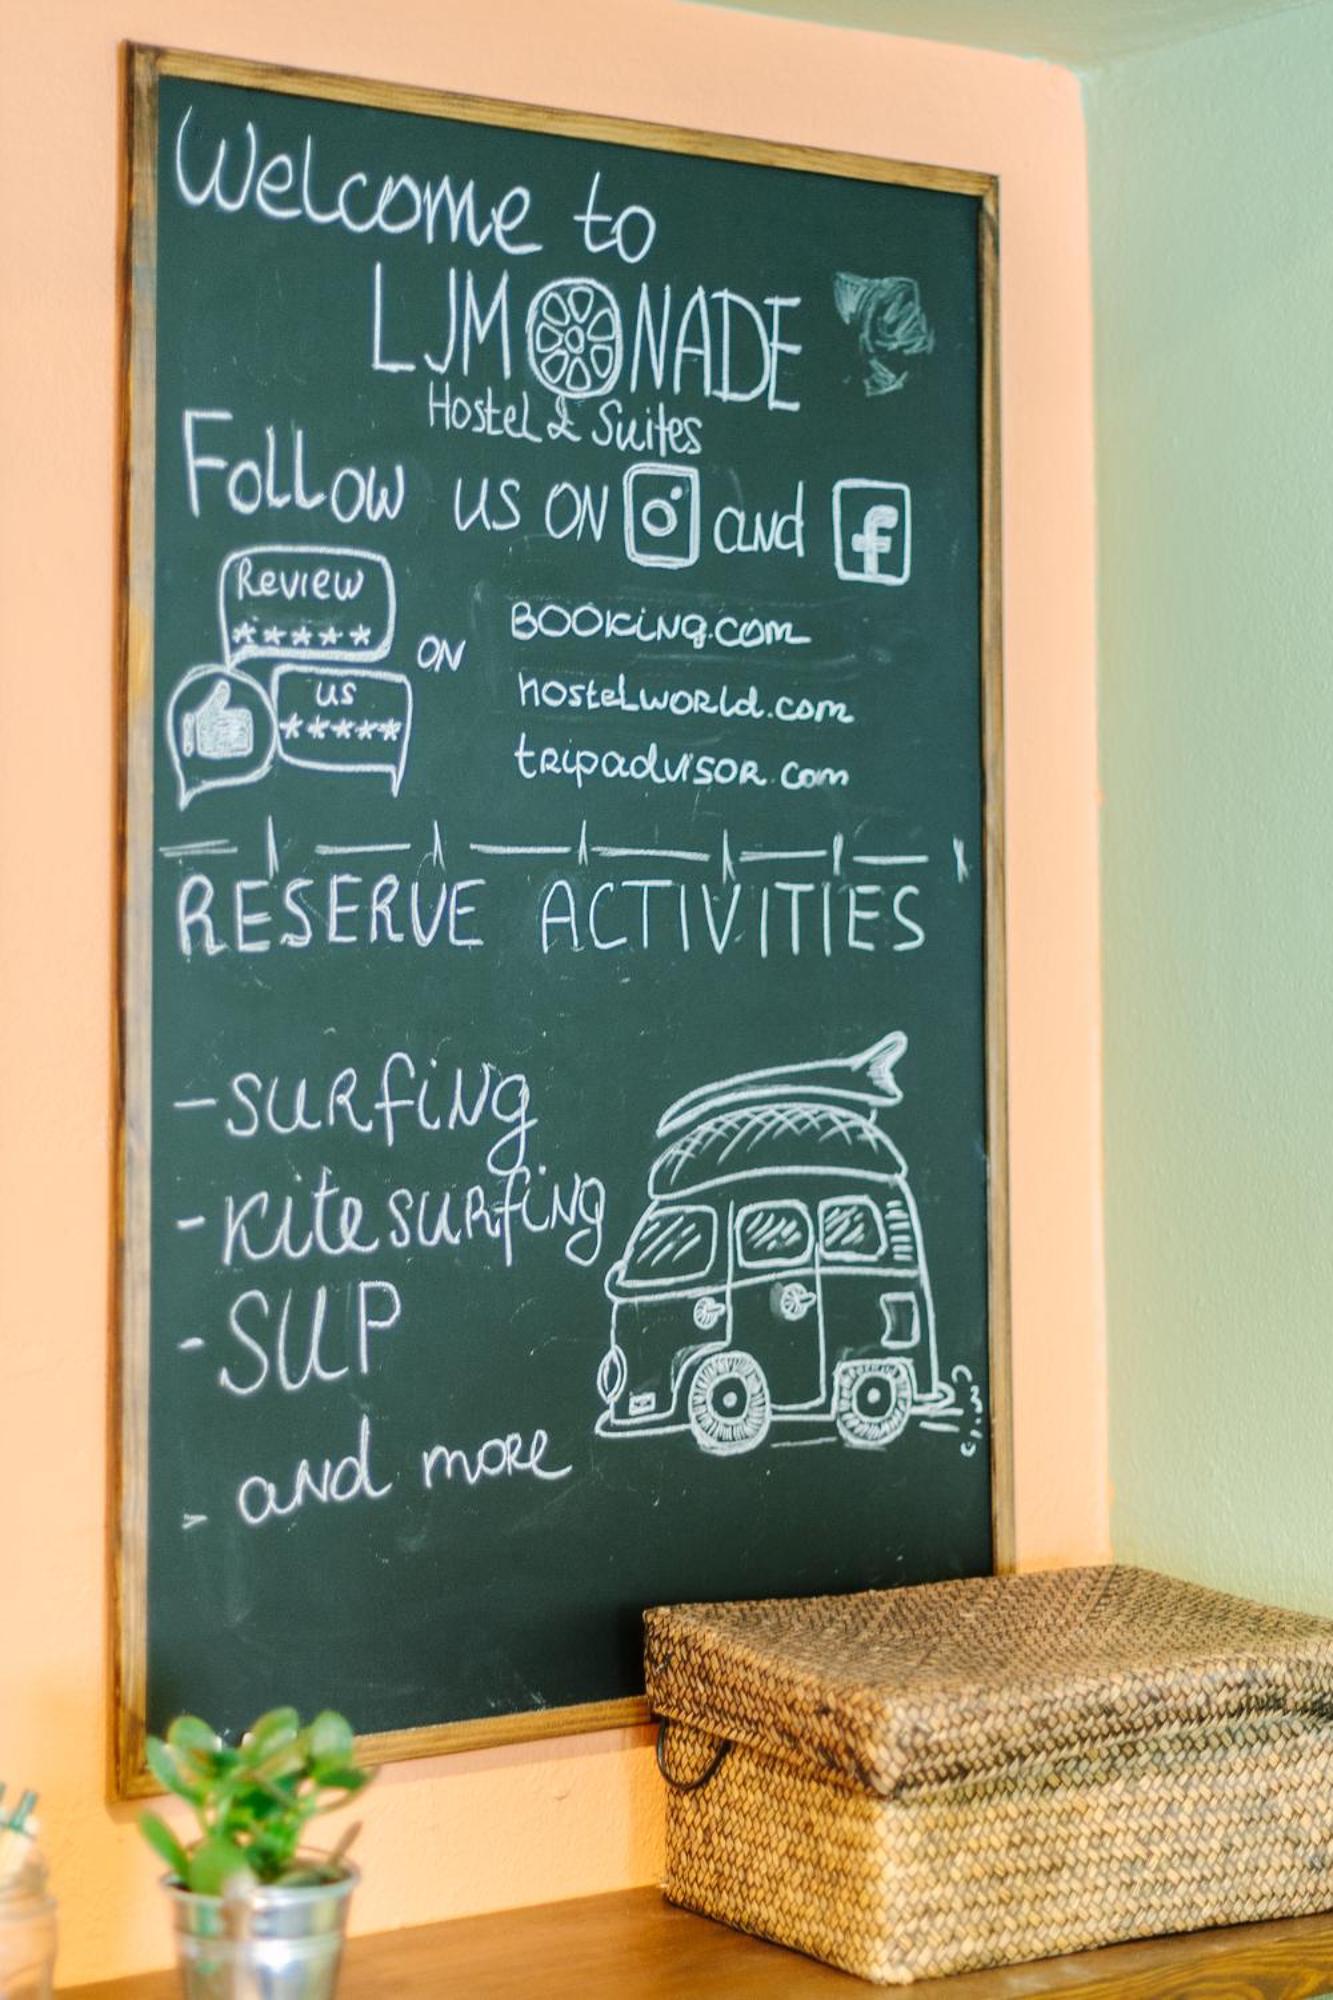 Welcome to
LJMONADE
Hostel & Suites
Follow us ON and f
Review
*****
us
*****
ON
BOOKiNg.com
hostelworld.com
tripadvisor.com
RESERVE ACTIVITIES
- surfiNg
- kitesurfiNg
- SUP
- and more